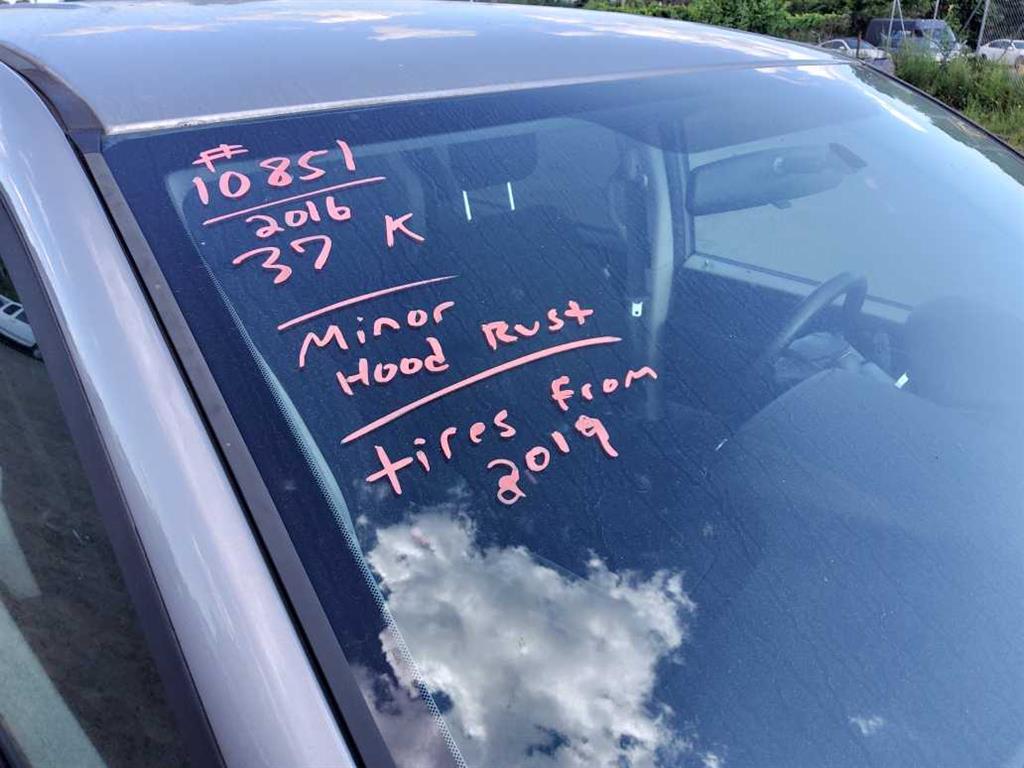 #
10851
2016
37 K
Minor
Hood Rust
tires From
2019